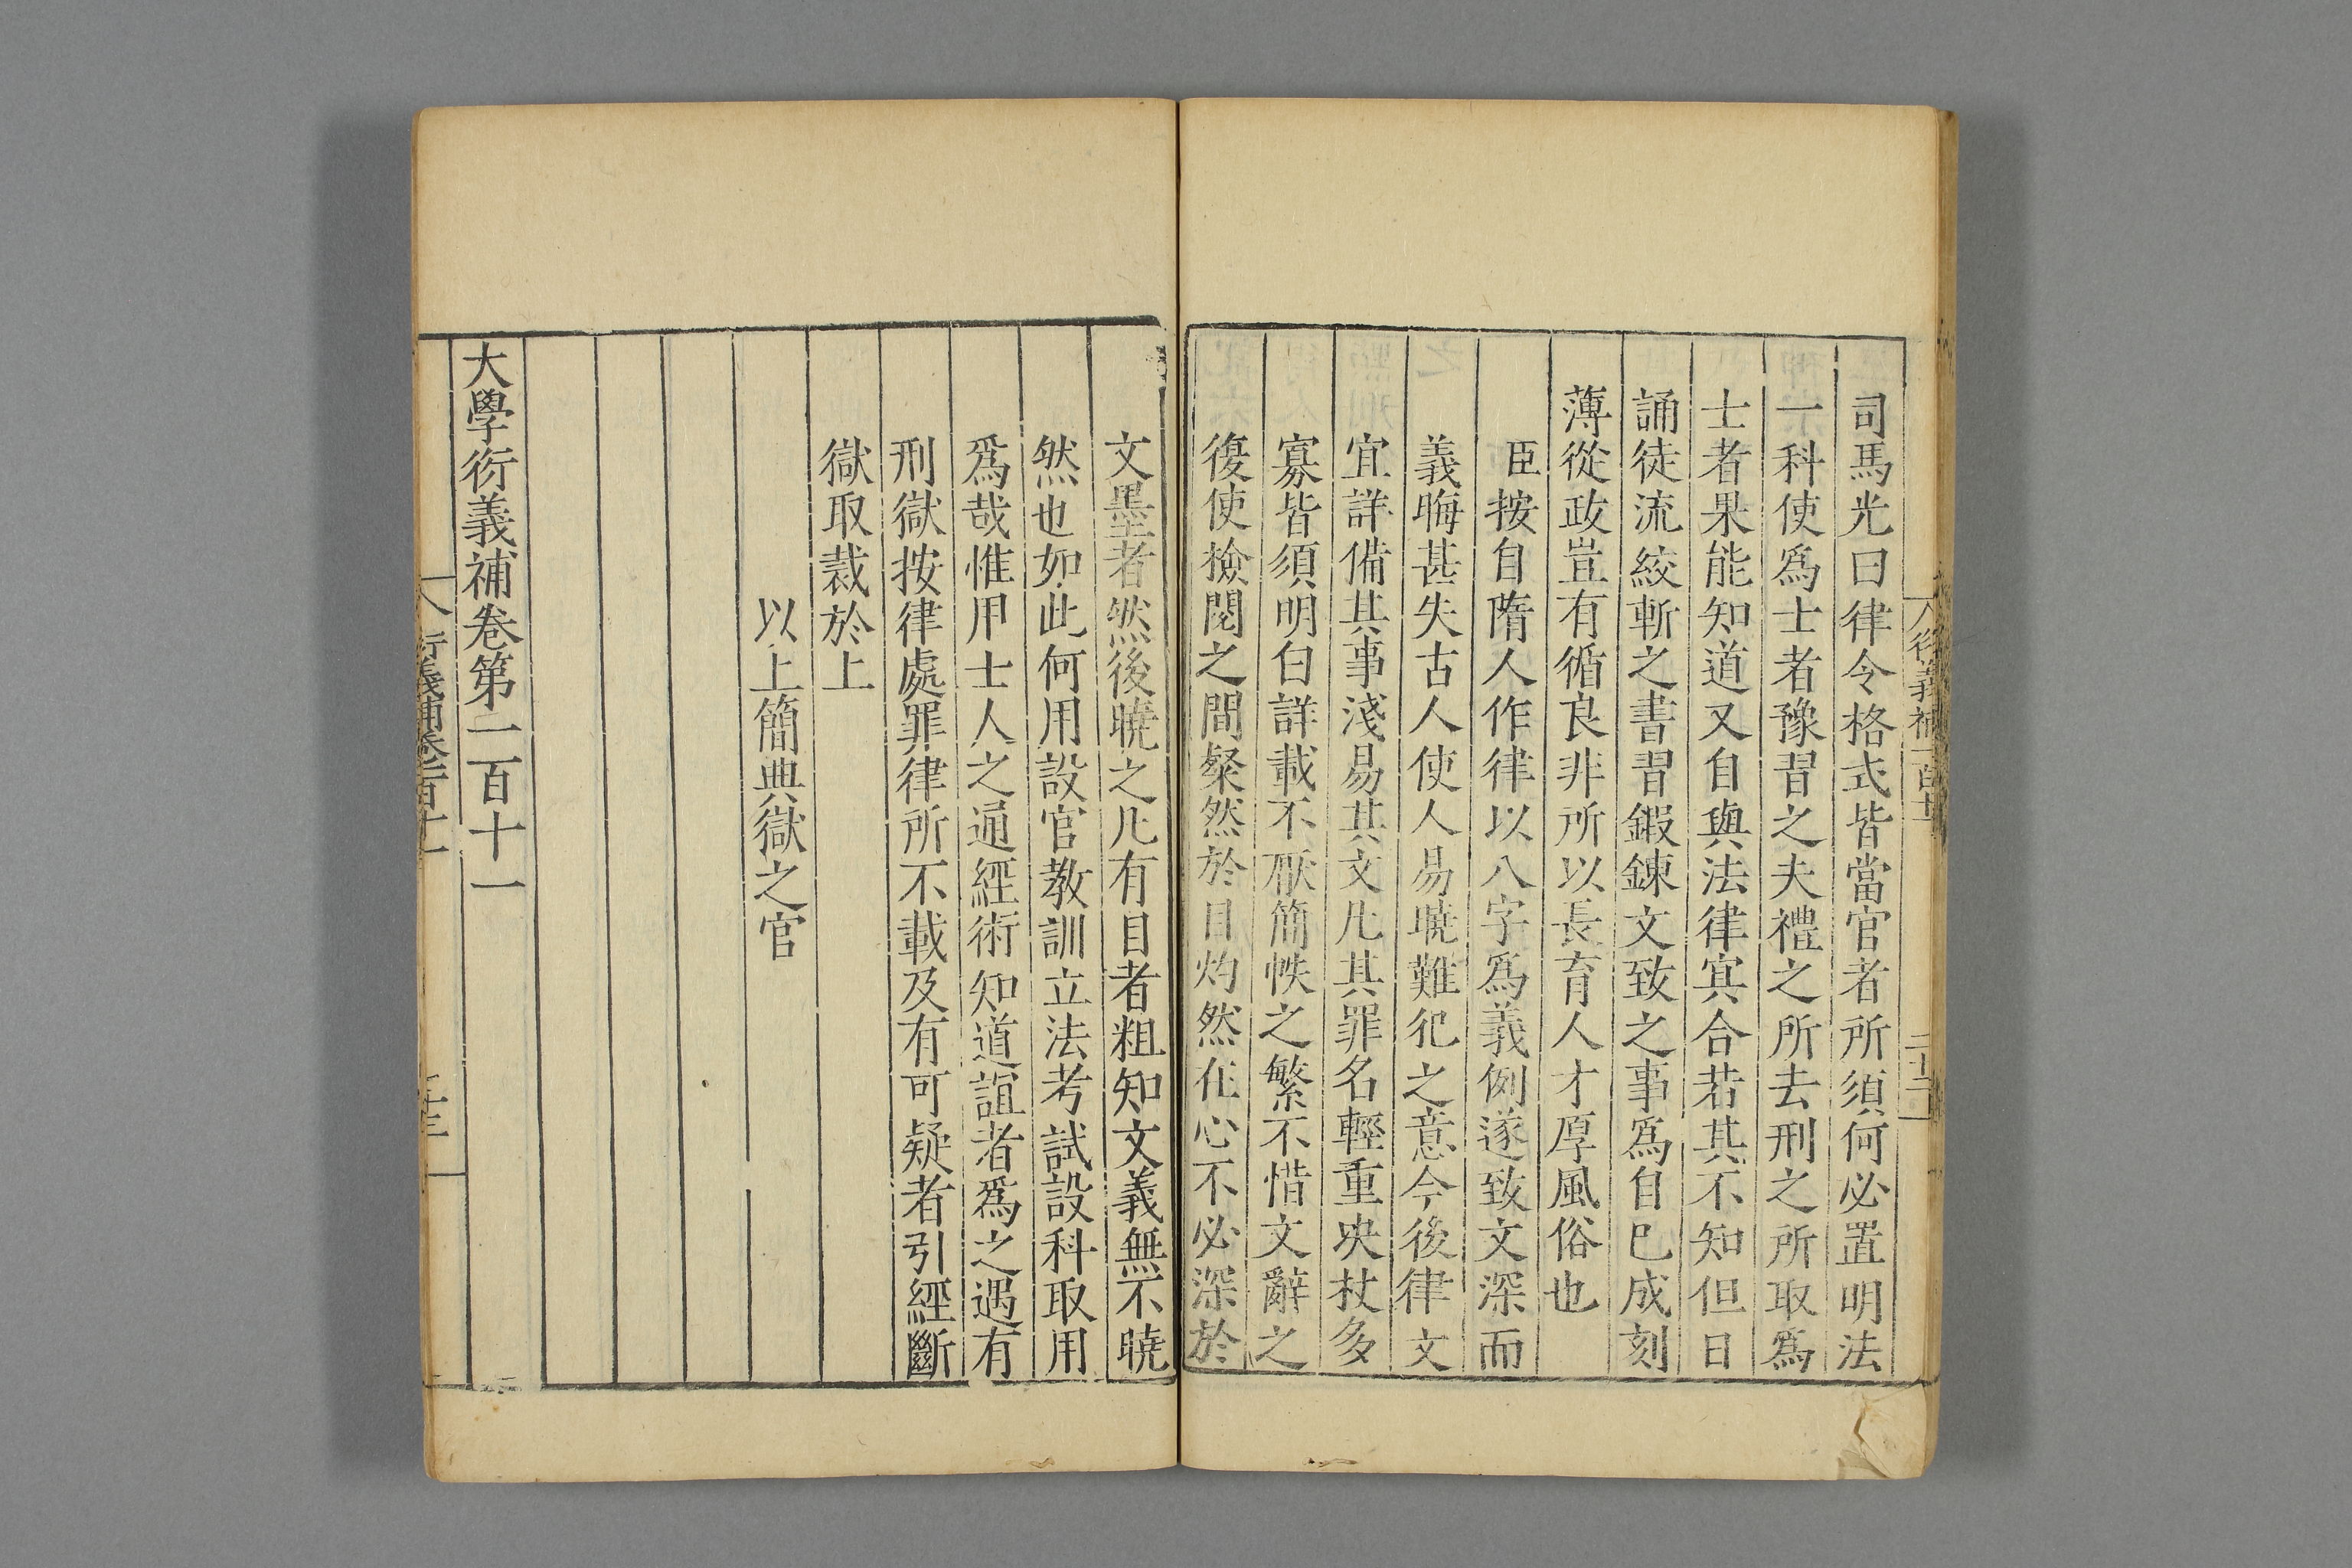 司馬光曰律令格式皆當官者所須何必置明法
一科使爲士者豫習之夫禮之所去刑之所取爲
士者果能知道又自與法律冥合若其不知但日
誦徒流絞斬之書習鍜鍊文致之事爲自已成刻
薄從政豈有循良非所以長育人才厚風俗也
臣按自隋人作律以八字爲義例遂致文深而
義晦甚失古人使人易曉難犯之意今後律文
宜詳備其事淺易其文凡其罪名輕重决杖多
寡皆須明白詳載不厭簡帙之繁不惜文辭之
復使檢閱之間粲然於目灼然在心不必深於
文墨者然後曉之凡有目者粗知文義無不曉
然也如此何用設官教訓立法考試設科取用
爲哉惟用士人之通經術知道誼者爲之遇有
刑獄按律處罪律所不載及有可疑者引經斷
獄取裁於上
以上簡典獄之官
大學衍義補卷第一百十一
衍義補卷一百十一